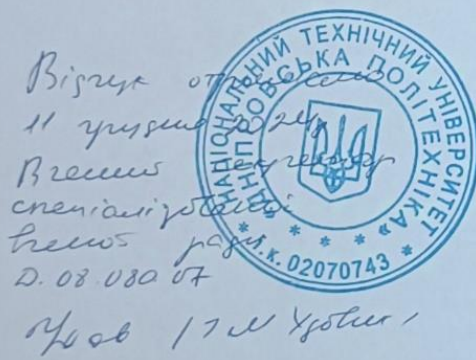 Відгук отримано
11 грудня 2024р
Вчений секретар
спеціалізованої
вченої ради
Д. 08.080.07
НАЦІОНАЛЬНИЙ ТЕХНІЧНИЙ УНІВЕРСИТЕТ
«ДНІПРОВСЬКА ПОЛІТЕХНІКА»
* * * * * І.К. 02070743 *